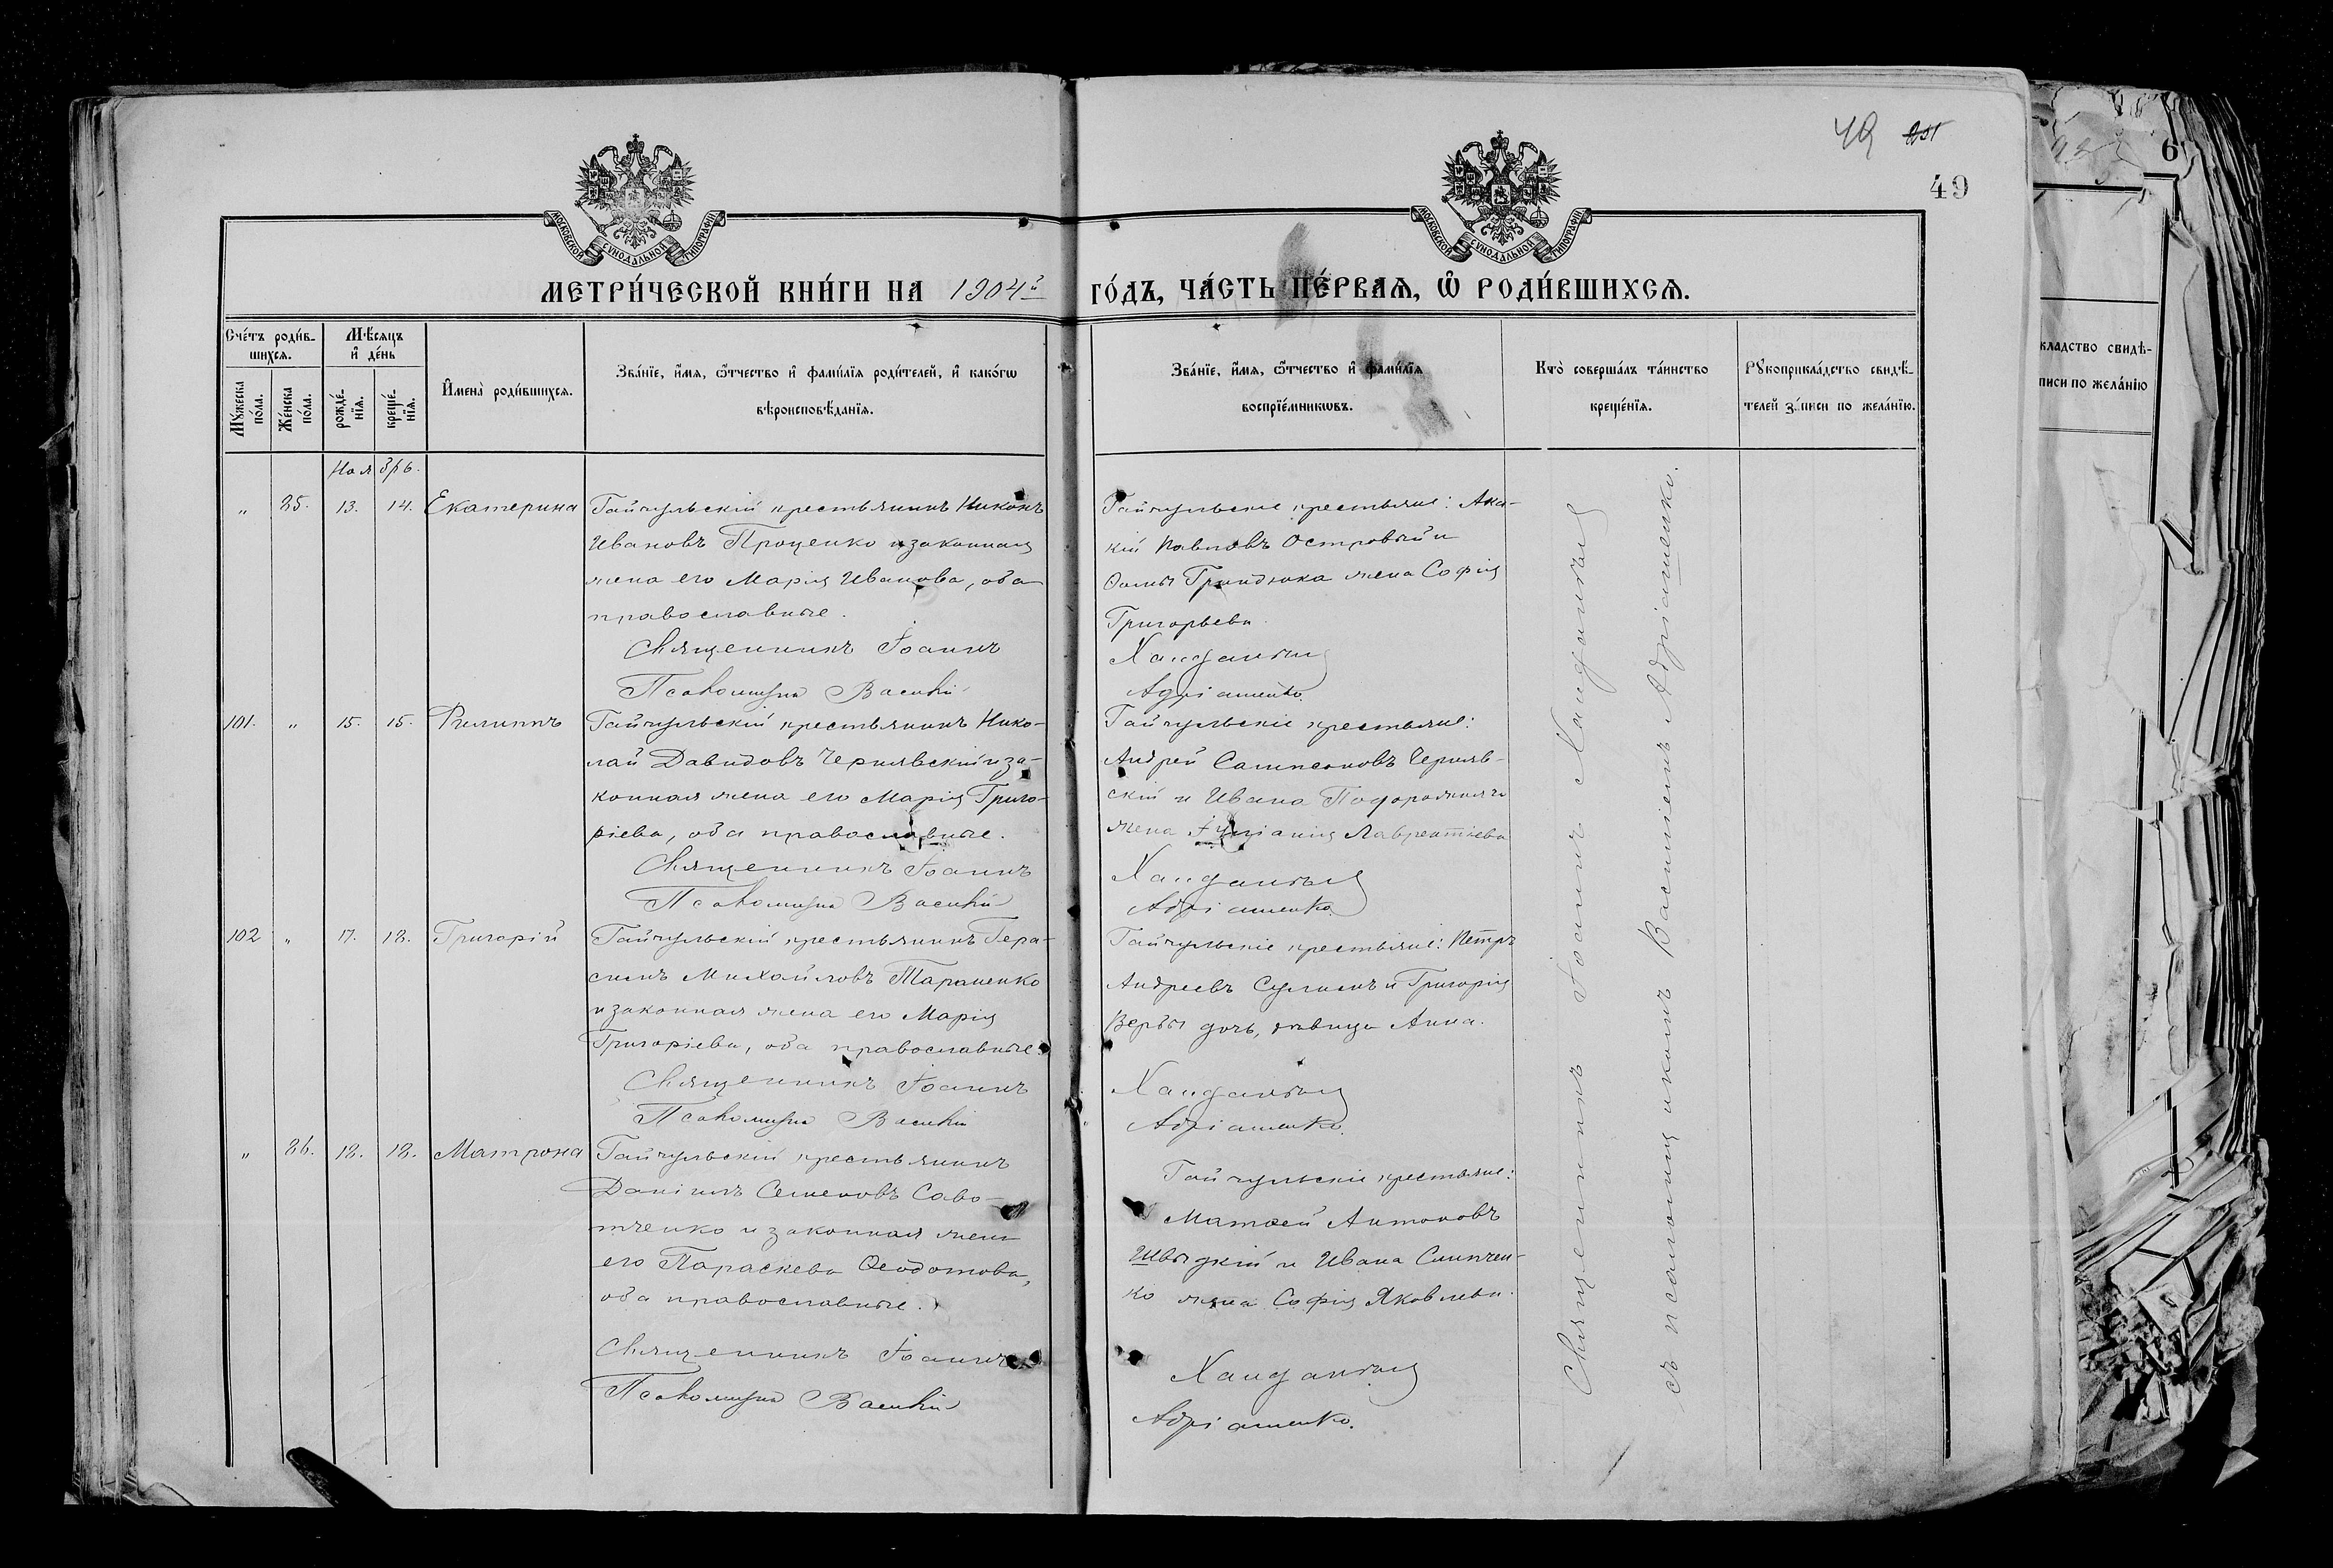 49
49
6
МОСКОВСКОЙ СѴНОДАЛЬНОЙ ТИПОГРАФІИ
МОСКОВСКОЙ СѴНОДАЛЬНОЙ ТИПОГРАФІИ
МЕТРИ́ЧЕСКОЙ КНИ́ГИ НА 1904й ГО́ДЪ, ЧА́СТЬ ПЕ́РВАѦ, Ѡ҆ РОДИ́ВШИХСѦ.
Сче́тъ роди́в-
шихсѧ.
Мꙋ́жеска по́ла.
Же́нска по́ла.
Мѣ́сѧцъ
и҆ де́нь
рожде́-нїѧ.
креще́-нїѧ.
И҆мена̀ роди́вшихсѧ.
Зва́нїе, и҆́мѧ, ѻ҆́тчество и҆ фами́лїѧ роди́телей, и҆ како́гѡ
вѣроисповѣ́данїѧ.
Зва́нїе, и҆́мѧ, ѻ҆́тчество и҆ фами́лїѧ
воспрїе́мникѡвъ.
Кто̀ соверша́лъ та́инство
креще́нїѧ.
Рꙋкоприкла́дство свидѣ́-
телей за́писи по жела́нїю.
кладство свидѣ-
писи по жела́нїю
Ноябрь.
" 25. 13. 14. Екатерина
Гайчульскій крестьянинъ Никонъ
Ивановъ Проценко и законная
жена его Марія Иванова, оба
православные.
Священникъ Іоаннъ
Псаломщикъ Василій
Гайчульскіе крестьяне: Ака-
кій Павловъ Островый и
Ѳомы Гриндюка жена Софія
Григорьева.
Хандалый
Адріашенко.
101. " 15. 15. Филиппъ
Гайчульскій крестьянинъ Нико-
лай Давидовъ Чернявскій и за-
конная жена его Марія Григо-
ріева, оба православные.
Священникъ Іоаннъ
Псаломщикъ Василій
Гайчульскіе крестьяне:
Андрей Сампсоновъ Черняв-
скій и Ивана
жена Іуліанія Лаврентіева
Адріашенко.
102 " 17. 18. Григорій
Гайчульскій крестьянинъ Гера-
симъ Михайловъ Тараненко
и законная жена его Марія
Григоріева, оба православные.
Священникъ Іоаннъ
Псаломщикъ Василій
Гайчульскіе крестьяне: Петръ
Андреевъ и Григорія
Вербы дочь, дѣвица Анна.
Адріашенко.
" 26. 18. 18. Матрона
Гайчульскій крестьянинъ
Даніилъ Семеновъ Саво-
тченко и законная жена
его Параскева Ѳеодотова,
оба православные.
Священникъ Іоаннъ
Псаломщикъ Василій
Гайчульскіе крестьяне:
Матѳей Антоновъ
Швыдкій и Ивана Слипчен-
ко жена Софія Яковлева.
Адріашенко.
Священникъ Іоаннъ
съ псаломщикомъ Василіемъ Адріашенко.